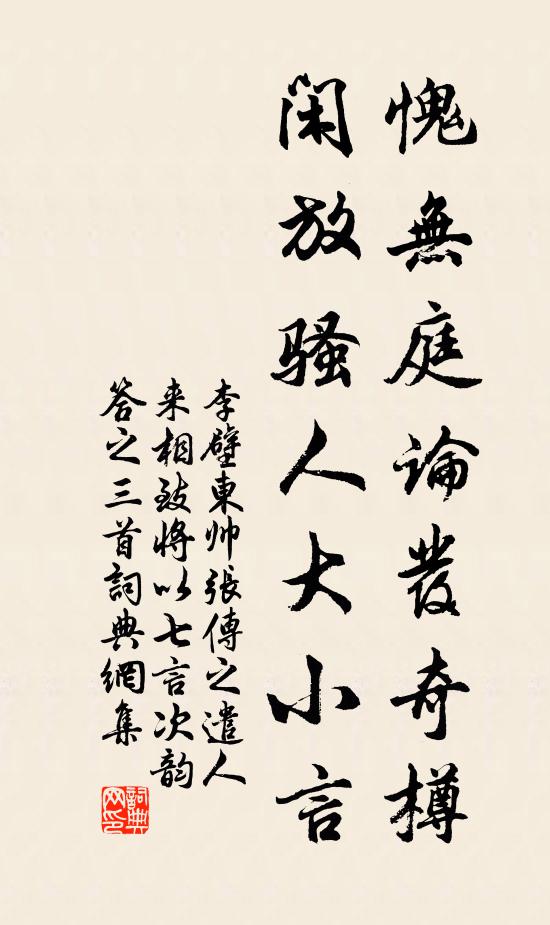 愧無庭論發奇樽
閑放騷人大小言
李壁東帅張傅之遣人
来相致將以七言次韵
答之三首詞典網集
詞典网印